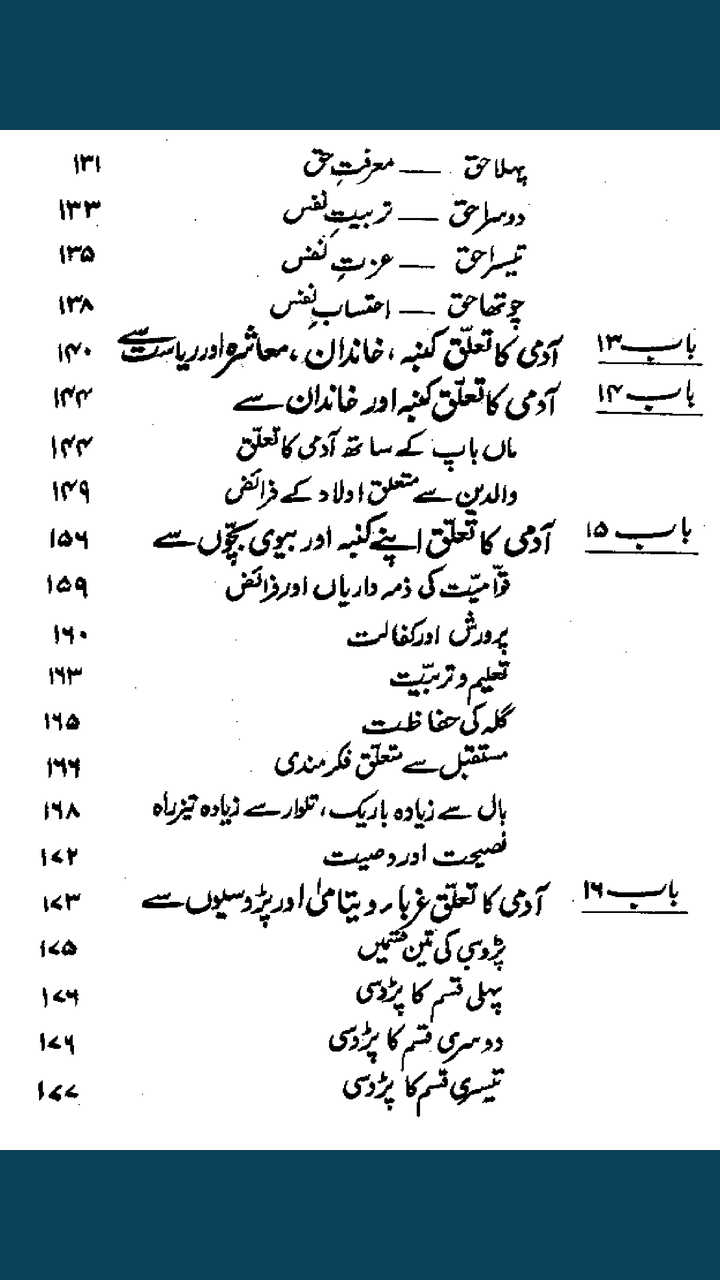 پہلا حق — معرفتِ حق ۱۳۱
دوسرا حق — تربیتِ نفس ۱۳۳
تیسرا حق — عزتِ نفس ۱۳۵
چوتھا حق — احتسابِ نفس ۱۳۸
باب ۱۳ آدمی کا تعلّق کنبہ، خاندان، معاشرہ اور ریاست سے ۱۴۰
باب ۱۴ آدمی کا تعلّق کنبہ اور خاندان سے ۱۴۴
ماں باپ کے ساتھ آدمی کا تعلّق ۱۴۴
والدین سے متعلق اولاد کے فرائض ۱۴۹
باب ۱۵ آدمی کا تعلّق اپنے کنبہ اور بیوی بچّوں سے ۱۵۶
قوّامیّت کی ذمہ داریاں اور فرائض ۱۵۹
پرورش اور کفالت ۱۶۰
تعلیم و تربیّت ۱۶۳
گلہ کی حفاظت ۱۶۵
مستقبل سے متعلّق فکر مندی ۱۶۶
بال سے زیادہ باریک، تلوار سے زیادہ تیز راہ ۱۶۸
نصیحت اور وصیت ۱۷۲
باب ۱۶ آدمی کا تعلّق غرباء و یتامیٰ اور پڑوسیوں سے ۱۷۳
پڑوسی کی تین قسمیں ۱۷۵
پہلی قسم کا پڑوسی ۱۷۶
دوسری قسم کا پڑوسی ۱۷۶
تیسری قسم کا پڑوسی ۱۷۷